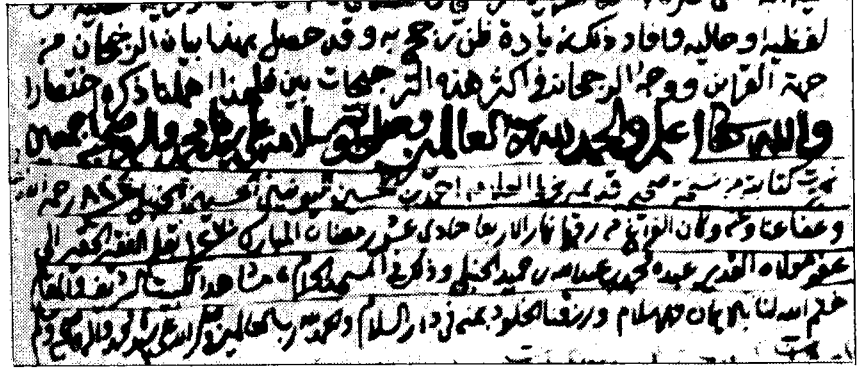 لفظية او حالية وافاد ذلك زيادة ظن رجح به وقد حصل بهذا بيان الرجحان من
جهة القرائن ووجه الرجحان في اكثر هذه الترجيحات بين فلهذا اهملنا ذكره اختصارا
والله تعالى اعلم والحمد لله رب العالمين وصلواته وسلامه على محمد واله وصحبه اجمعين
تمت كتابة من نسخة صحيحة قديمة بخط العلامة احمد بن الحسين رحمه الله
وعفا عنا وعنه وكان الفراغ من رقمها نهار الاربعا حادي عشر رمضان المبارك بقلم الفقير الحقير الى
عفو مولاه القدير عبده محمد بن عبدالله بن حميد الحنبلي وذلك في المسجد الحرام مشاهدا للبيت الشريف والمقام
ختم الله لنا بالايمان والاسلام ورزقنا الخلود بمنه في دار السلام والحمد لله رب العالمين وصلى الله على سيدنا محمد واله وصحبه وسلم
تمت